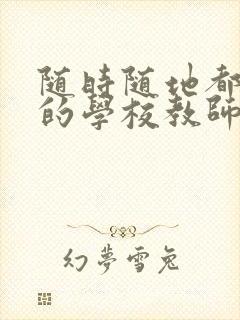 随時随地都
的學校教師
幻夢雪兔